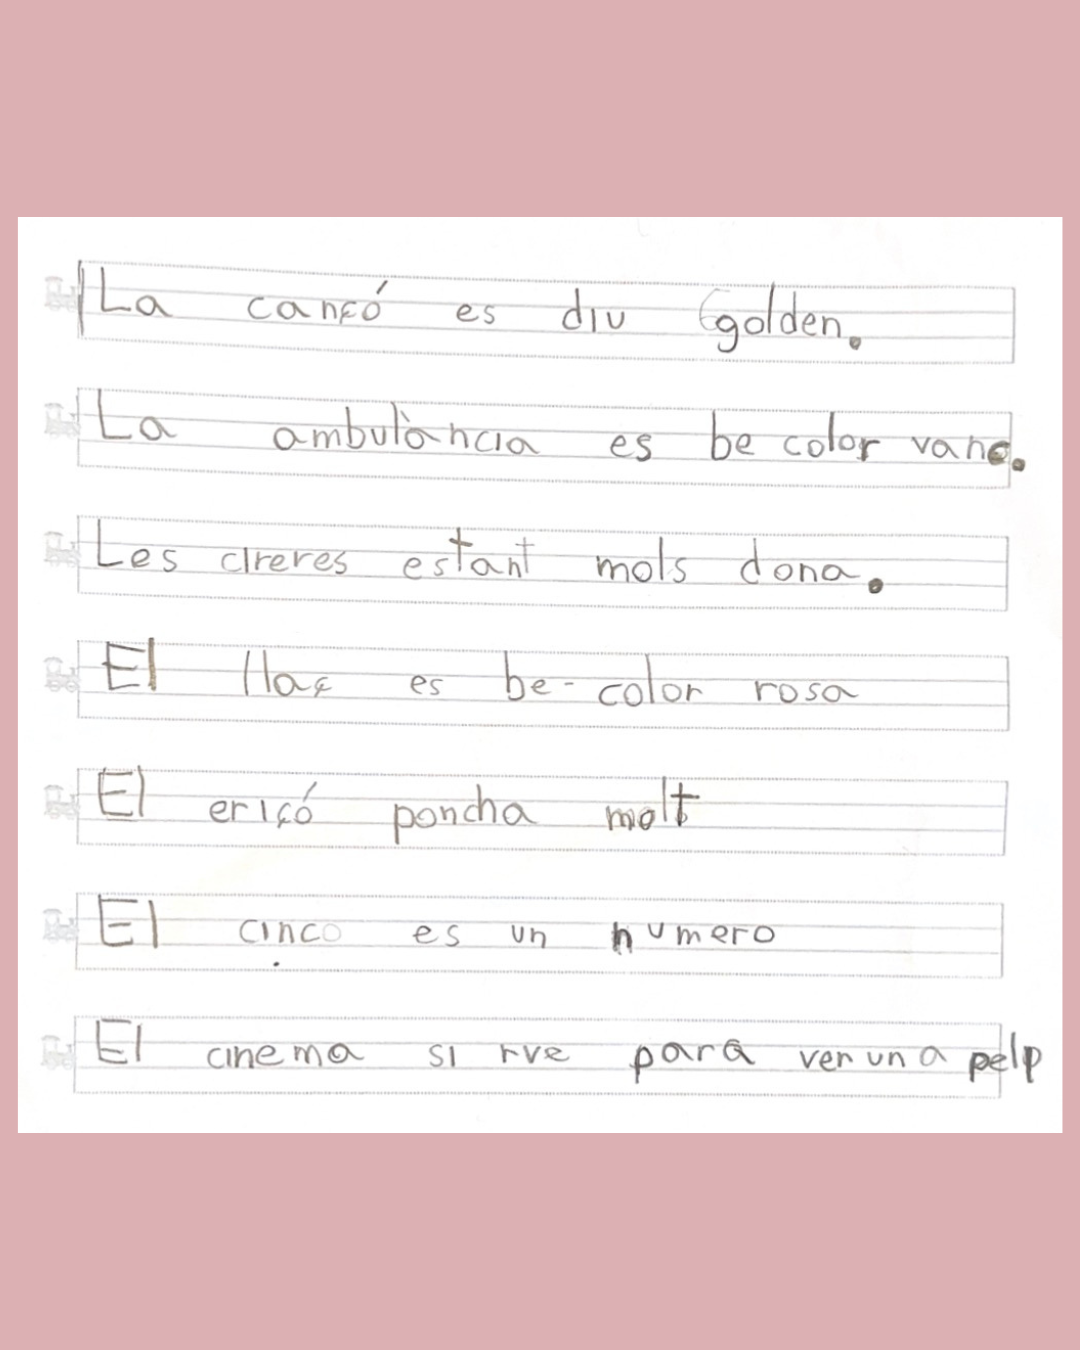 La cançó es diu golden.
La ambulància es be color vane.
Les cireres estant mols dona.
El llaç es be-color rosa
El eriçó poncha molt
El cinco es un numero
El cinema si rve para ver un a pelp